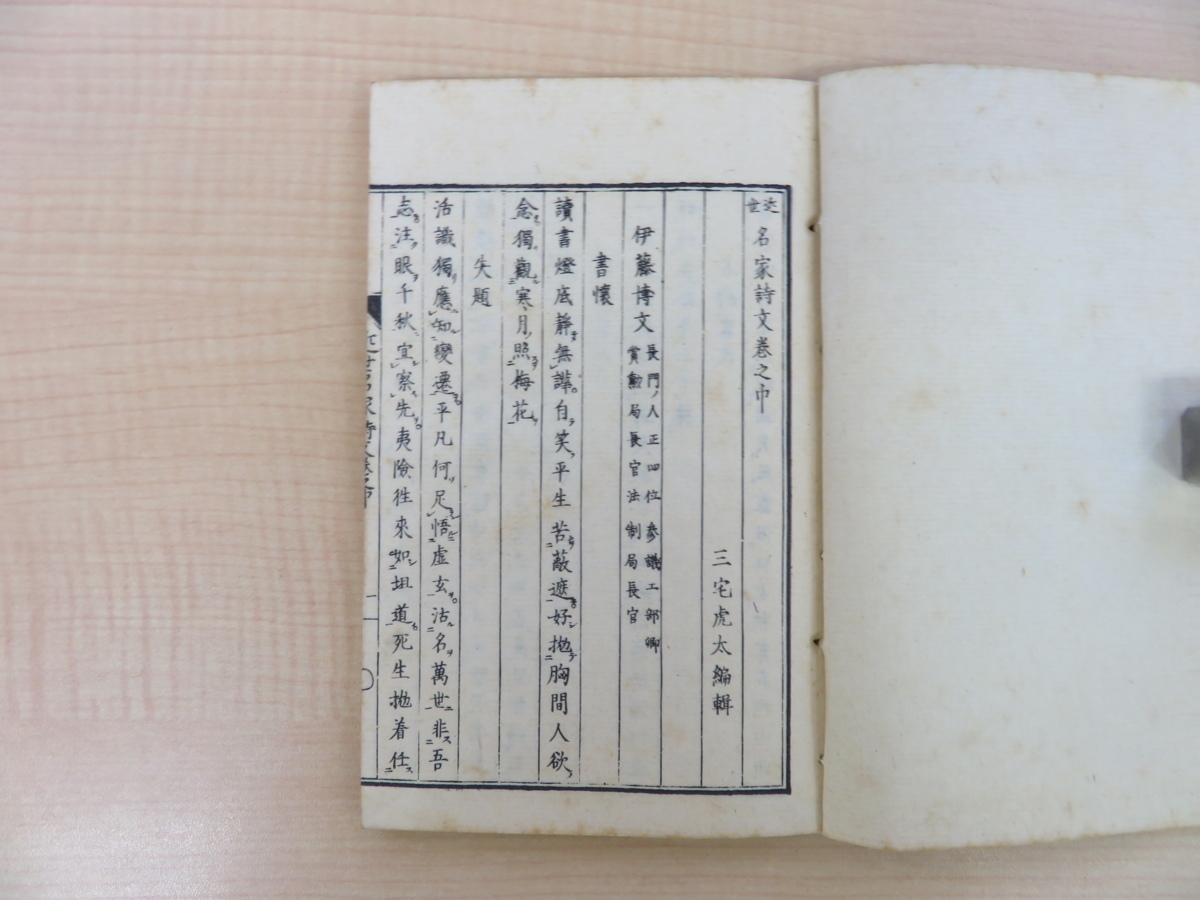 近世名家詩文巻之中
三宅虎太編輯
伊藤博文 長門ノ人正四位参議工部卿
賞勲局長官法制局長官
書懷
讀書燈底靜無譁自笑平生苦蔽遮好拋胸間人欲
念獨觀寒月照梅花
失題
活識獨應知變遷平凡何足悟虛玄沽名萬世非吾
志注眼千秋宜察先夷險徃來如坦道死生拋着任
近世名家詩文巻之中